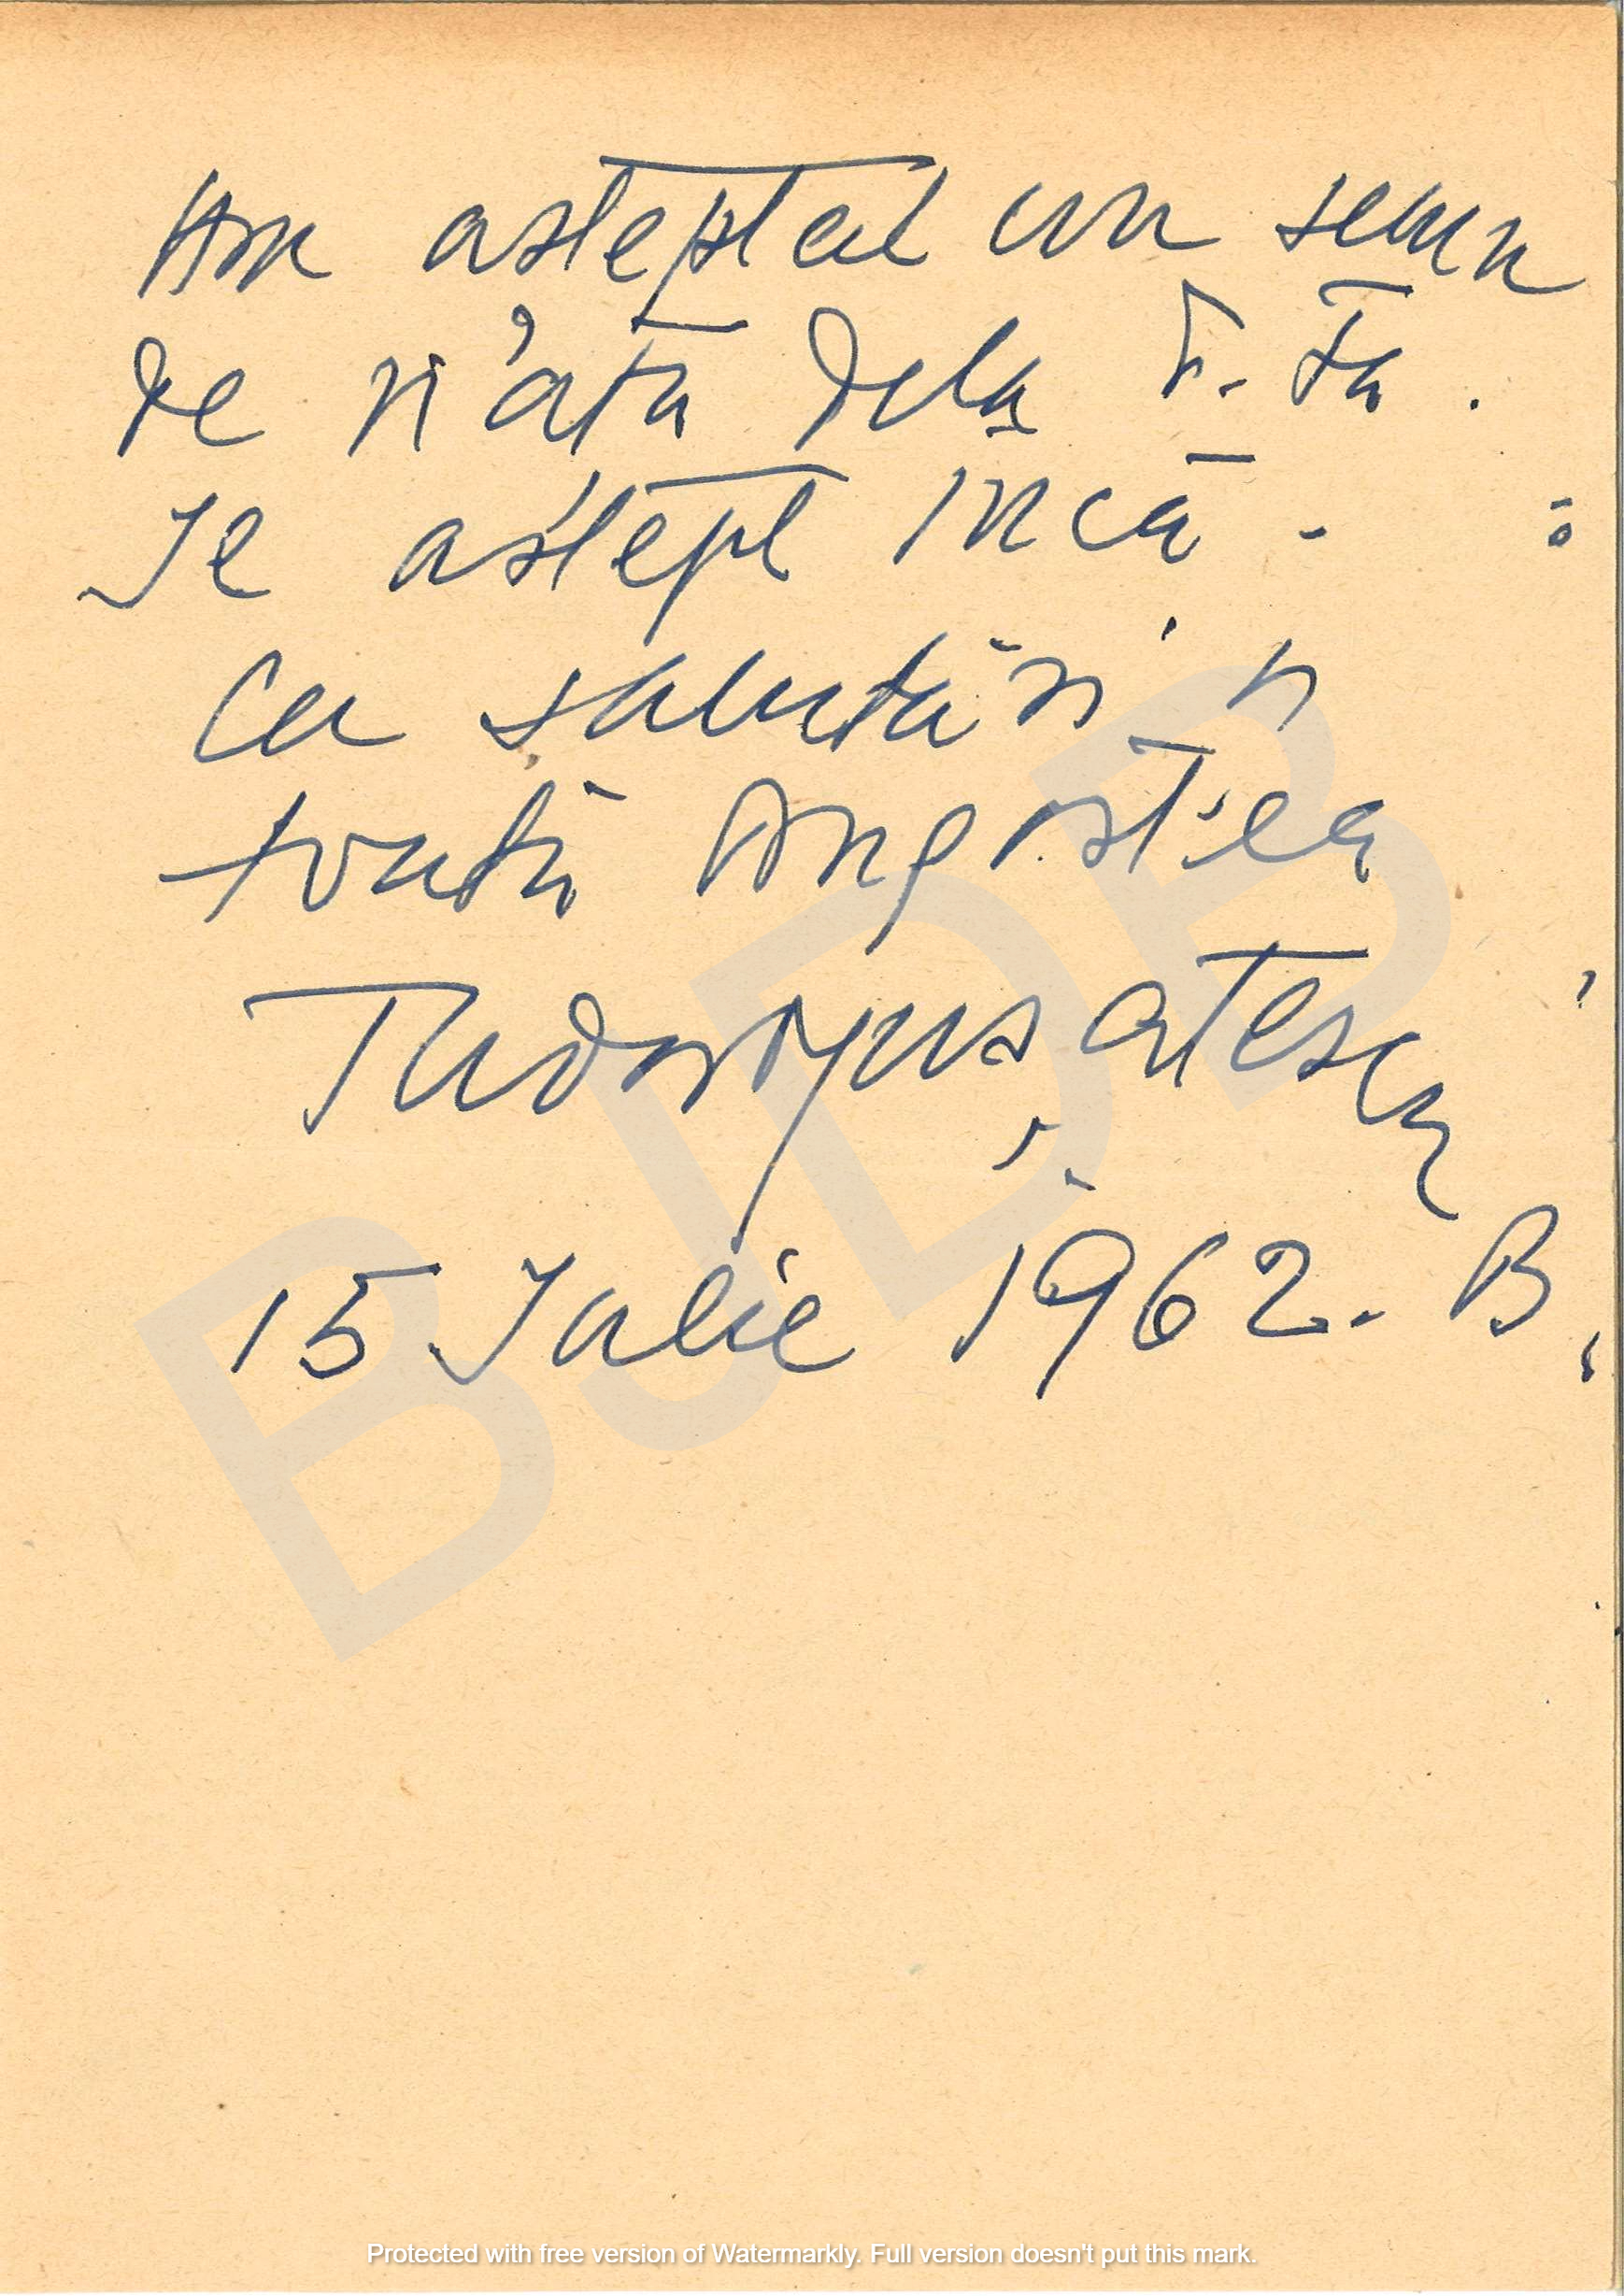 Am asteptat un semn
de viața dela D-ta.
Il astept încă.
Cu salutări și
toată dragostea
Tudor Mușatescu
15 Iulie 1962. B.
BJDB
Protected with free version of Watermarkly. Full version doesn't put this mark.